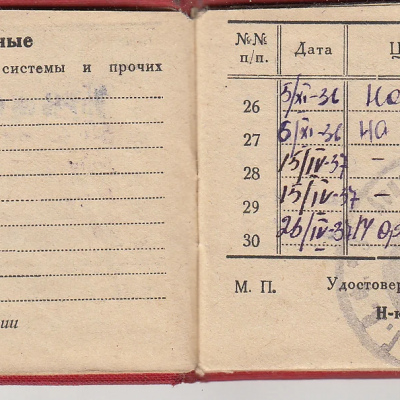 ные
системы и прочих
ии
№№ п/п. Дата
26 5/XI-36 На
27 6/XI-36 на
28 15/IV-37 -
29 15/IV-37 -
30 26/IV-37
М. П. Удостовер
Н-к